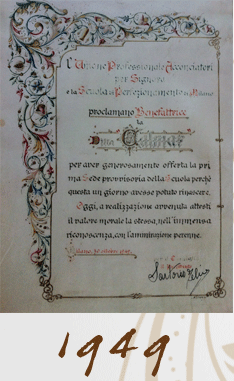 L'Unione Professionale Acconciatori
per Signora
e la Scuola di Perfezionamento di Milano
proclamano Benefattrice
la
Ditta
per aver generosamente offerta la pri
ma Sede provvisoria della Scuola perchè
questa un giorno avesse potuto rinascere.
Oggi, a realizzazione avvenuta attesti
il valore morale la stessa, nell'immensa
riconoscenza, con l'ammirazione perenne.
Milano,
1949